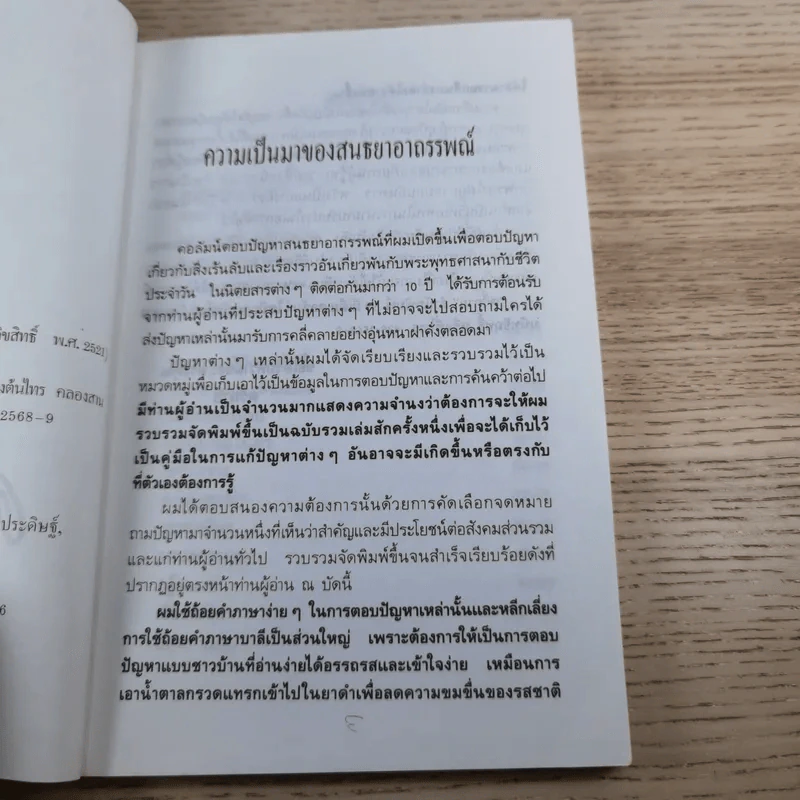 ขสิทธิ์ พ.ศ. 2521
งต้นไทร คลองสาน
2568-9
ประดิษฐ์,
6
ความเป็นมาของสนธยาอาถรรพณ์
คอลัมน์ตอบปัญหาสนธยาอาถรรพณ์ที่ผมเปิดขึ้นเพื่อตอบปัญหา
เกี่ยวกับสิ่งเร้นลับและเรื่องราวอันเกี่ยวพันกับพระพุทธศาสนากับชีวิต
ประจำวัน ในนิตยสารต่าง ๆ ติดต่อกันมากว่า 10 ปี ได้รับการต้อนรับ
จากท่านผู้อ่านที่ประสบปัญหาต่าง ๆ ที่ไม่อาจจะไปสอบถามใครได้
ส่งปัญหาเหล่านั้นมารับการคลี่คลายอย่างอุ่นหนาฝาคั่งตลอดมา
ปัญหาต่าง ๆ เหล่านั้นผมได้จัดเรียบเรียงและรวบรวมไว้เป็น
หมวดหมู่เพื่อเก็บเอาไว้เป็นข้อมูลในการตอบปัญหาและการค้นคว้าต่อไป
มีท่านผู้อ่านเป็นจำนวนมากแสดงความจำนงว่าต้องการจะให้ผม
รวบรวมจัดพิมพ์ขึ้นเป็นฉบับรวมเล่มสักครั้งหนึ่งเพื่อจะได้เก็บไว้
เป็นคู่มือในการแก้ปัญหาต่าง ๆ อันอาจจะมีเกิดขึ้นหรือตรงกับ
ที่ตัวเองต้องการรู้
ผมได้ตอบสนองความต้องการนั้นด้วยการคัดเลือกจดหมาย
ถามปัญหามาจำนวนหนึ่งที่เห็นว่าสำคัญและมีประโยชน์ต่อสังคมส่วนรวม
และแก่ท่านผู้อ่านทั่วไป รวบรวมจัดพิมพ์ขึ้นจนสำเร็จเรียบร้อยดังที่
ปรากฏอยู่ตรงหน้าท่านผู้อ่าน ณ บัดนี้
ผมใช้ถ้อยคำภาษาง่าย ๆ ในการตอบปัญหาเหล่านั้นและหลีกเลี่ยง
การใช้ถ้อยคำภาษาบาลีเป็นส่วนใหญ่ เพราะต้องการให้เป็นการตอบ
ปัญหาแบบชาวบ้านที่อ่านง่ายได้อรรถรสและเข้าใจง่าย เหมือนการ
เอาน้ำตาลกรวดแทรกเข้าไปในยาดำเพื่อลดความขมขื่นของรสชาติ